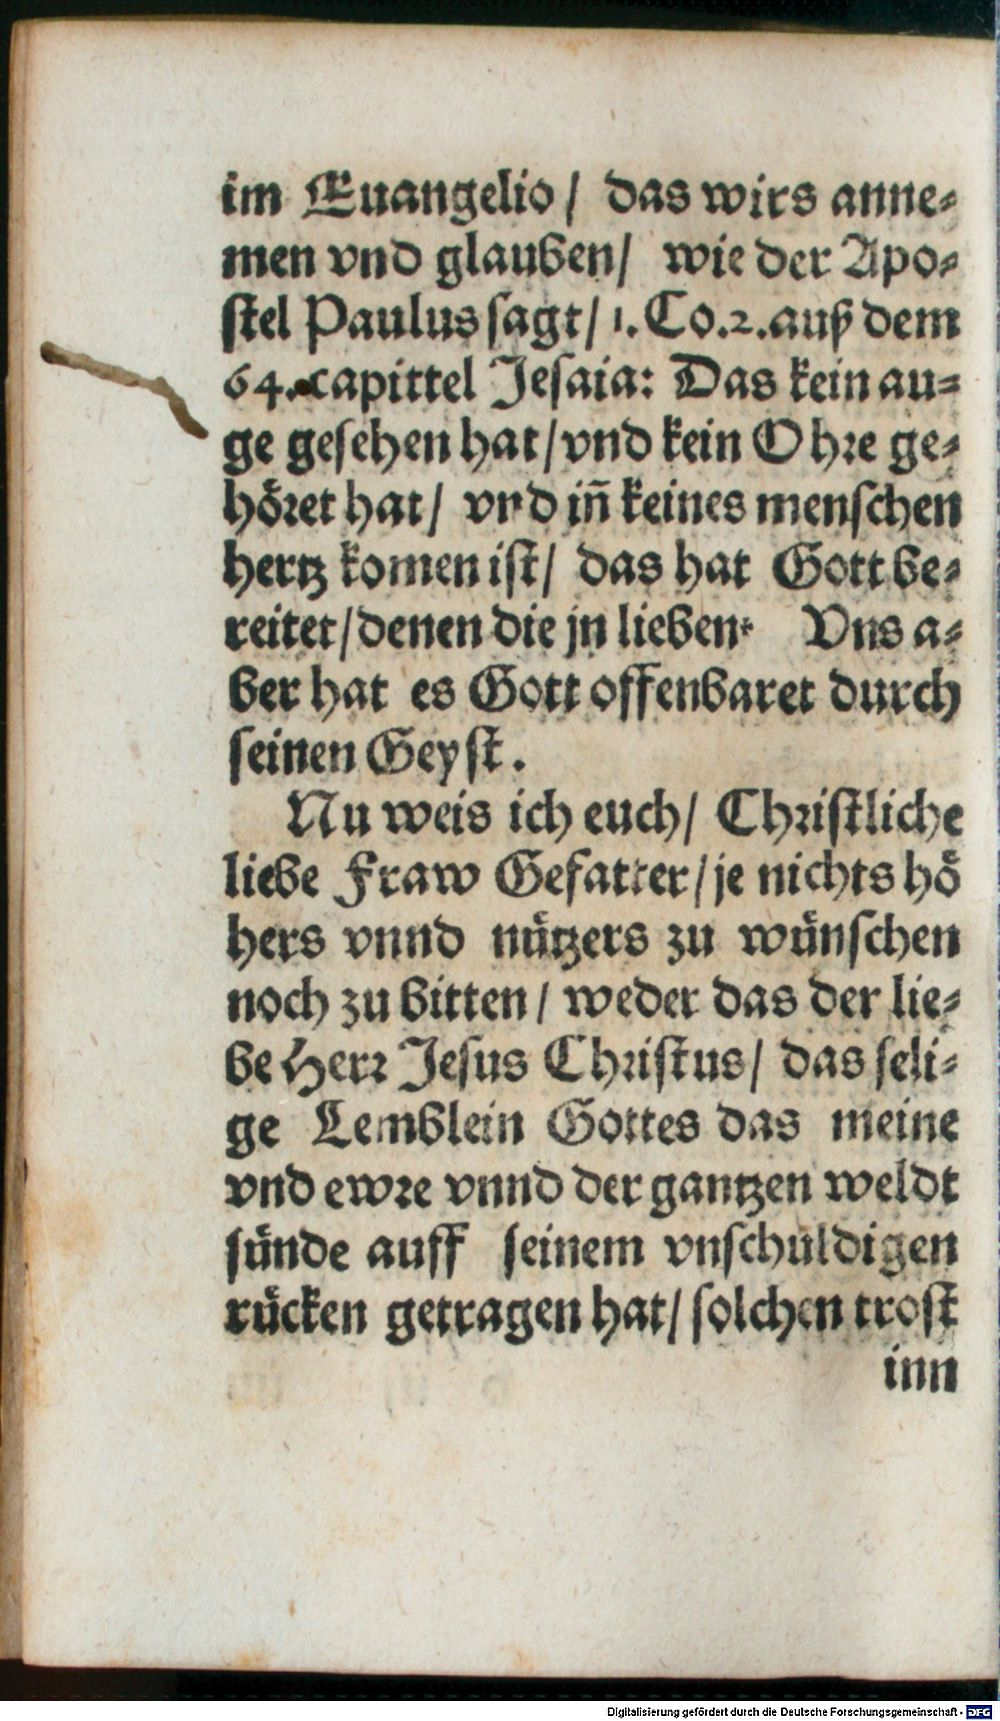 im Euangelio/ das wirs anne⸗
men vnd glauben/ wie der Apo⸗
stel Paulus sagt/ 1. Co. 2. auß dem
64. capittel Jesaia: Das kein au⸗
ge gesehen hat/ vnd kein Ohre ge⸗
höret hat/ vnd iñ keines menschen
hertz komen ist/ das hat Gott be⸗
reitet/ denen die jn lieben. Vns a⸗
ber hat es Gott offenbaret durch
seinen Geyst.
Nu weis ich euch/ Christliche
liebe Fraw Gefatter/ je nichts hö
hers vnnd nützers zu wünschen
noch zu bitten/ weder das der lie⸗
be Herr Jesus Christus/ das seli⸗
ge Lemblein Gottes das meine
vnd ewre vnnd der gantzen weldt
sünde auff seinem vnschuldigen
rücken getragen hat/ solchen trost
inn
Digitalisierung gefördert durch die Deutsche Forschungsgemeinschaft - DFG